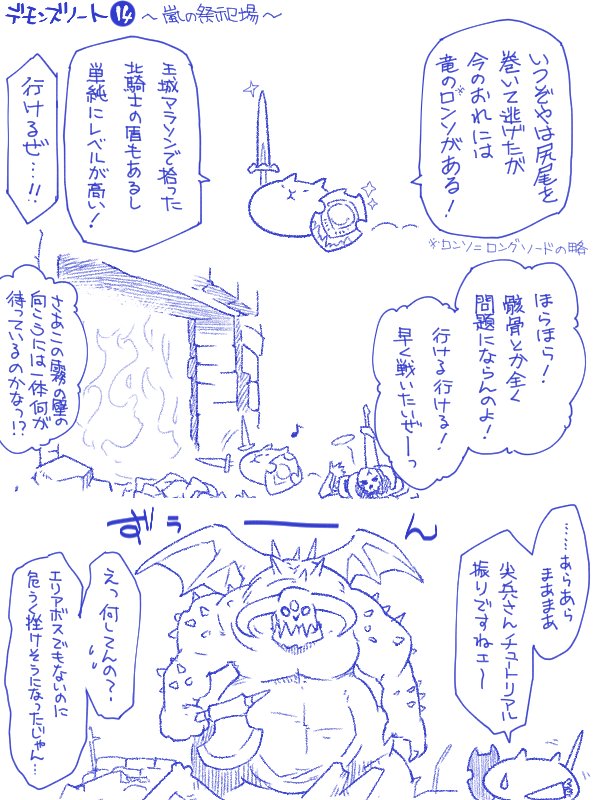 デモンズソート⑭ ～嵐の祭祀場～
いつぞやは尻尾を
巻いて逃げたが
今のおれには
竜の※ロンソがある！
※ロンソ=ロングソードの略
王城マラソンで拾った
北騎士の盾もあるし
単純にレベルが高い！
行けるぜ…!!
ほらほら！
骸骨とか全く
問題にならんのよ！
行ける行ける！
早く戦いたいぜーっ
♪
さあこの霧の壁の
向こうには一体何が
待っているのかなっ!?
ずぅーん
……あらあら
まあまあ
尖兵さんチュートリアル
振りですねェ～
えっ何してんの？
エリアボスでもないのに
危うく挫けそうになったじゃん…